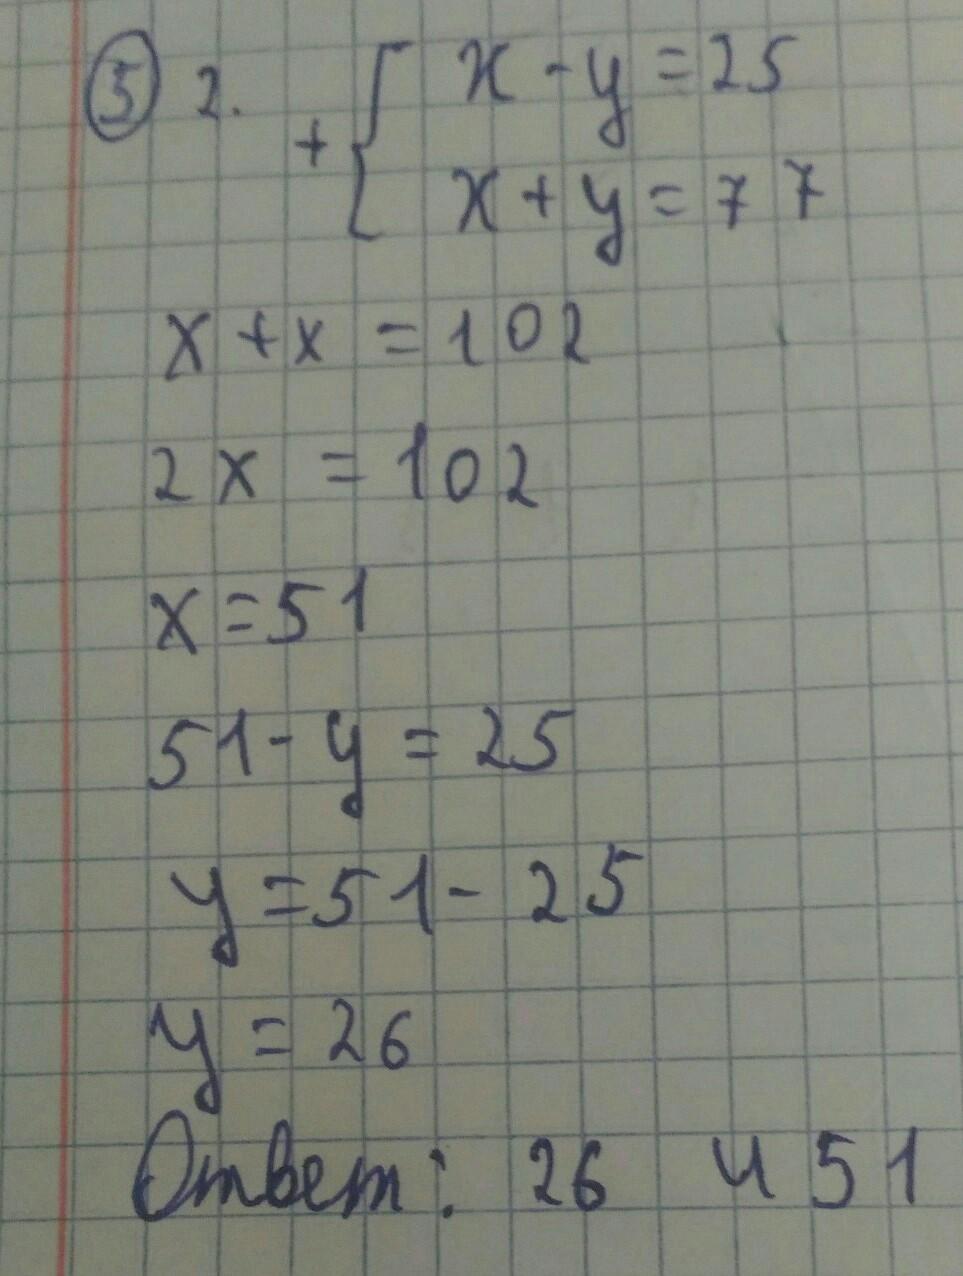 5 2. + { x - y = 25
x + y = 77
x + x = 102
2x = 102
x = 51
51 - y = 25
y = 51 - 25
y = 26
Ответ: 26 и 51